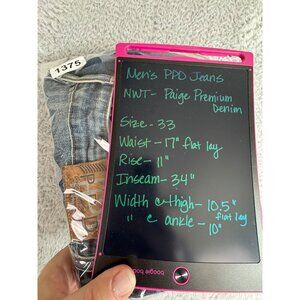 1375
Men's PPD Jeans
NWT - Paige Premium
Denim
Size - 33
Waist - 17" flat lay
Rise - 11"
Inseam - 34"
Width @ thigh - 10.5"
flat lay
" @ ankle - 10"
boogie board